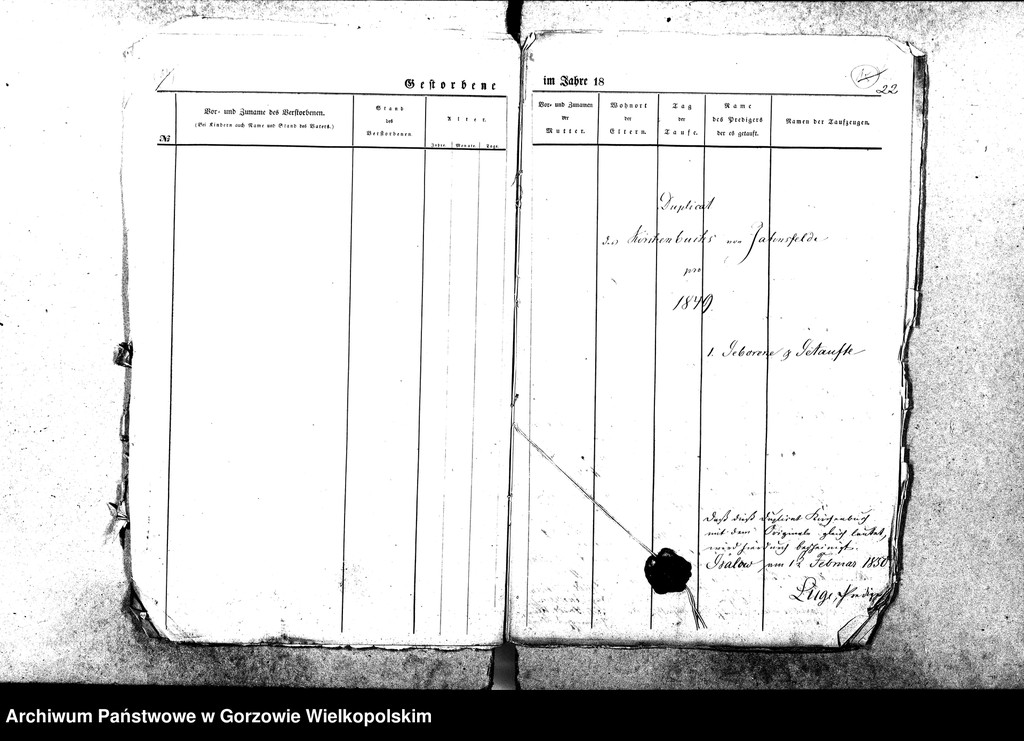 Gestorbene
№
Vor- und Zuname des Verstorbenen.
(Bei Kindern auch Name und Stand des Vaters.)
Stand
des
Verstorbenen
Alter.
Jahre. Monate. Tage.
im Jahre 18
22
Vor- und Zunamen
der
Mutter.
Wohnort
der
Eltern.
Tag
der
Taufe.
Name
des Predigers
der es getauft.
Namen der Taufzeugen.
Duplicat
des Kirchenbuchs von
pro
1849
1. Geborene & Getaufte
Daß dieß Duplicat Kirchenbuch
mit dem Originale gleich lautet,
wird hierdurch bescheinigt.
Gralow, am 12 Februar 1850
Prediger
Archiwum Państwowe w Gorzowie Wielkopolskim